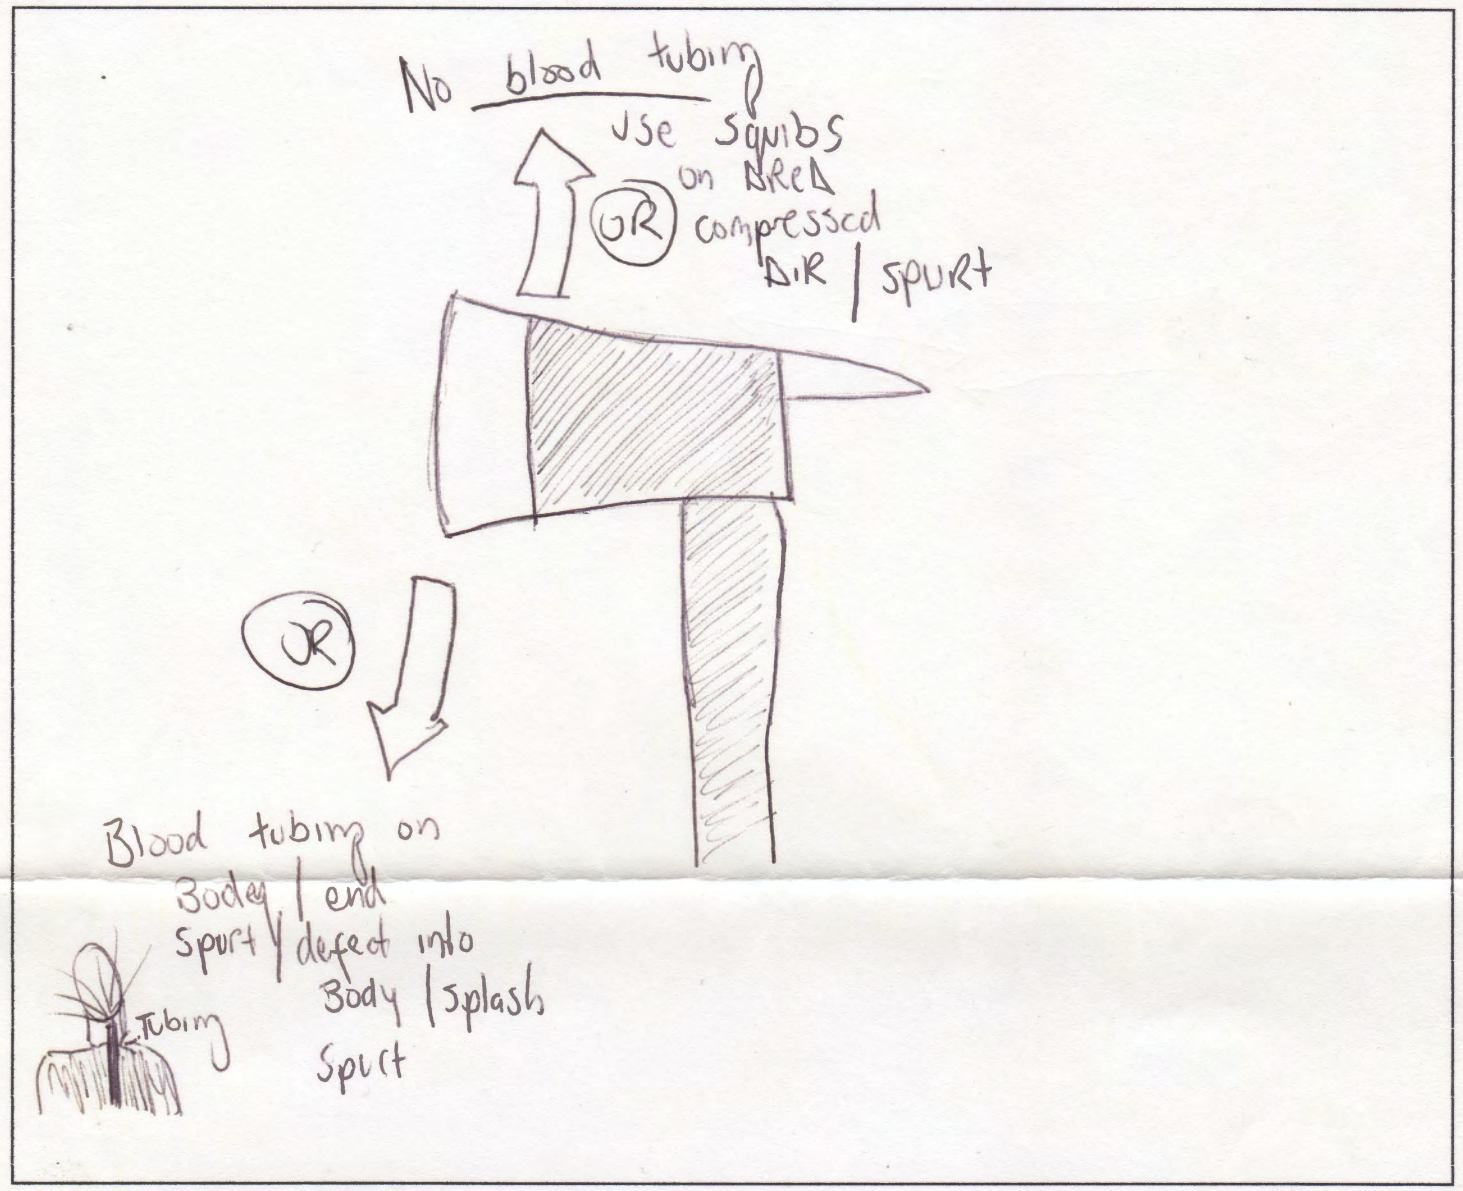 No blood tubing
use squibs
on AReA
OR compressed
AiR / SPURt
OR
Blood tubing on
Body / end
Spurt / defect into
Body / splash
Spurt
Tubing